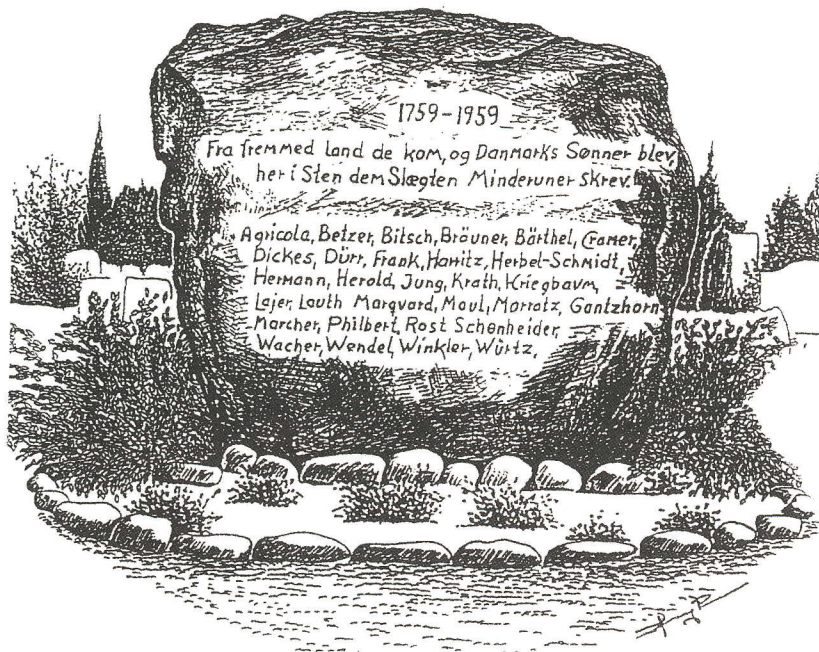 1759-1959
Fra fremmed land de kom, og Danmarks Sønner blev,
her i Sten dem Slægten Minderuner skrev.
Agricola, Betzer, Bitsch, Bräuner, Bärthel, Cramer,
Dickes, Dürr, Frank, Harritz, Herbel-Schmidt,
Hermann, Herold, Jung, Krath, Kriegbaum,
Lajer, Louth Marqvard, Maul, Marratz, Gantzhorn
Marcher, Philbert, Rost Schönheider,
Wacher, Wendel, Winkler, Würtz,